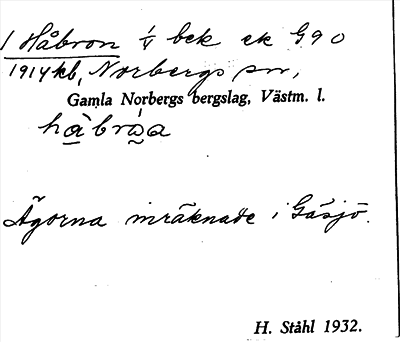 1 Håbron 1/4 bck ek G90
1914 kb, Norbergs sn,
Gamla Norbergs bergslag, Västm. l.
hàbróa
Ägorna inräknade i Gåsjö.
H. Ståhl 1932.